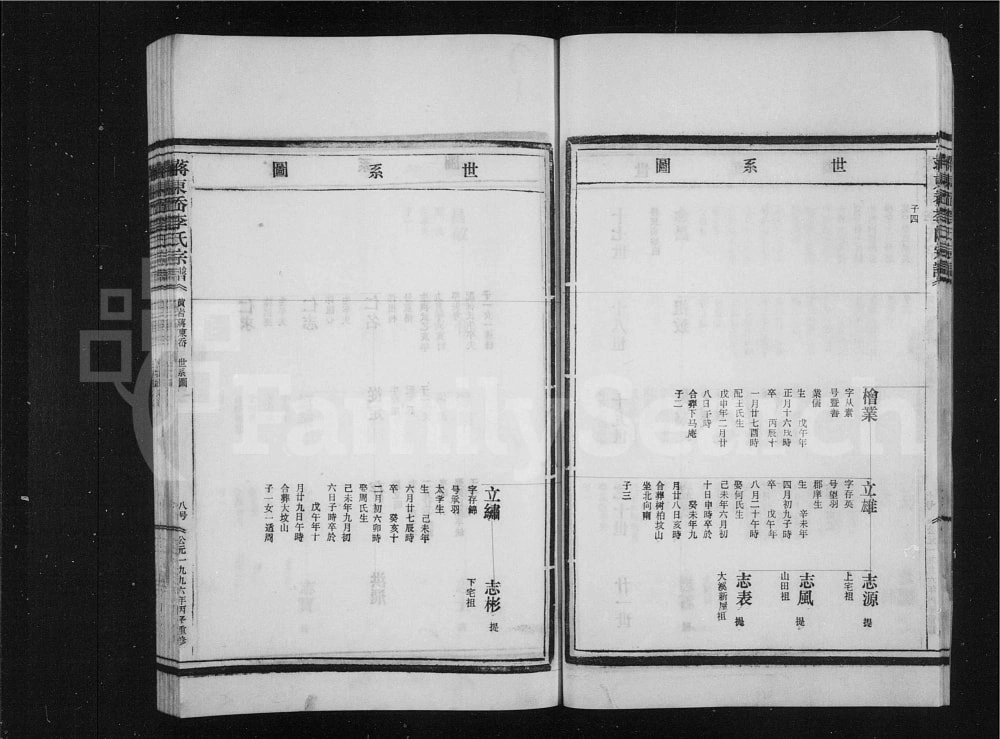 世系圖
子四
檜業
字从素
号登善
業儒
生 戊午年
正月十六戌時
卒 丙辰十
一月廿七酉時
配王氏生
戊申年二月廿
八日子時
合葬下马庵
子二
立雄
字存英
号望羽
郡庠生
生 辛未年
四月初九子時
卒 戊午年
八月二十午時
娶何氏生
己未年六月初
十日申時卒於
癸未年九
月廿八日亥時
合葬树柏坟山
坐北向南
子三
志源 提
上宅祖
志風 提
山田祖
志表 提
大溪新屋祖
世系圖
立繡
字存錦
号承羽
太学生
生 己未年
六月廿七辰時
卒 癸亥十
二月初六卯時
娶周氏生
己未年九月初
六日子時卒於
戊午年十
月廿九日午時
合葬大坟山
子一女一适周
志彬 提
下宅祖
蒋東岙李氏宗譜
黄岩蒋東岙 世系圖
八号
公元一九九六年丙子重修
FamilySearch